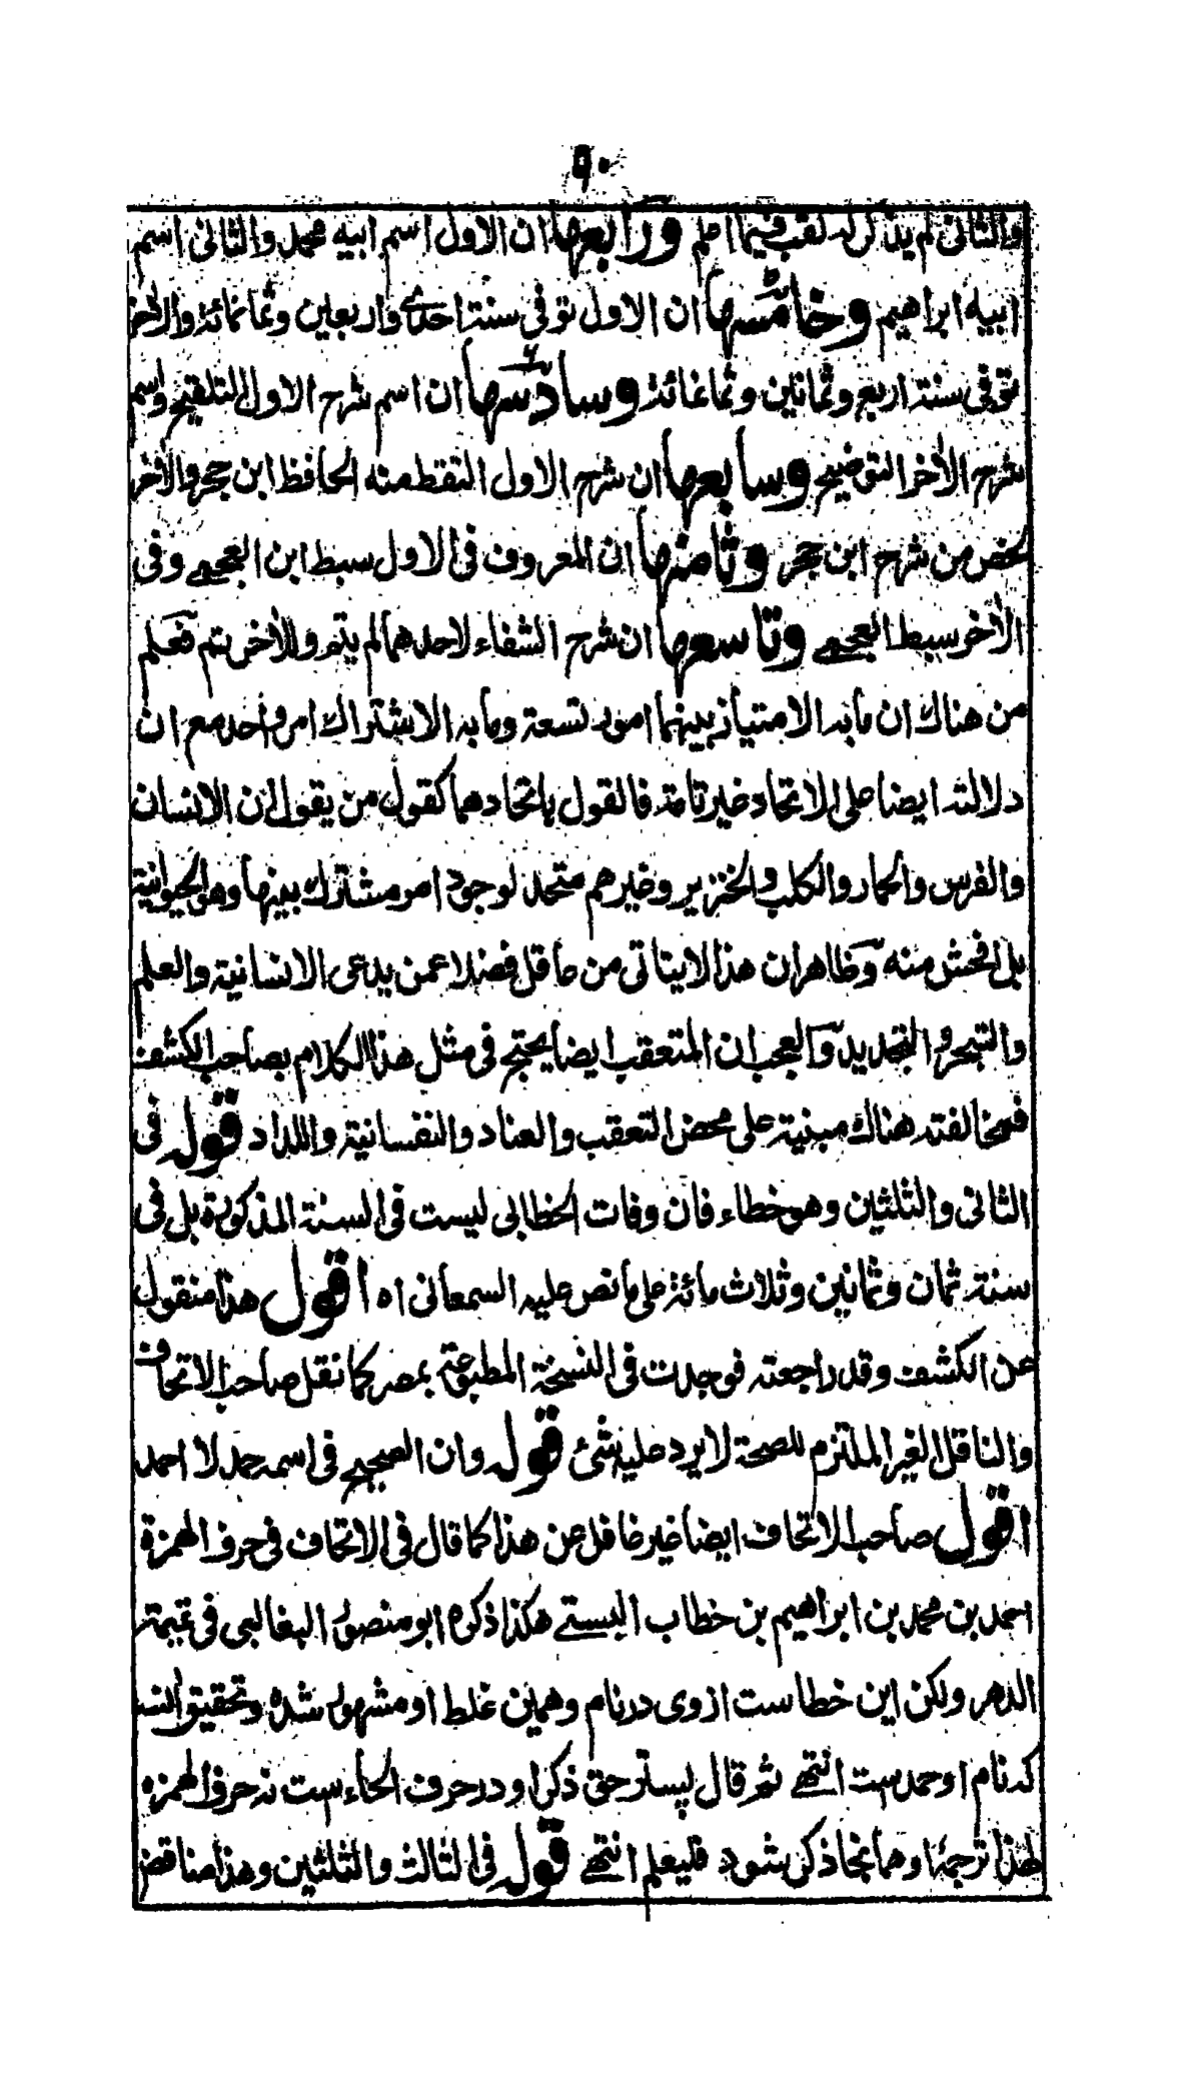 ٥٠
والثانى لم يذكر له لقب فيما اعلم ورابعها ان الاول اسم ابيه محمد والثانى اسم
ابيه ابراهيم وخامسها ان الاول توفى سنة احدى واربعين وثمانمائة والاخر
توفى سنة اربع وثمانين وثمانمائة وسادسها ان اسم شرح الاول التلقيح واسم
شرح الاخر التوضيح وسابعها ان شرح الاول التقط منه الحافظ ابن حجر والاخر
لخص من شرح ابن حجر وثامنها ان المعروف فى الاول سبط ابن العجمى وفى
الاخر سبط العجمى وتاسعها ان شرح الشفاء لاحدهما لم يتم وللأخر يتم فعلم
من هناك ان ما به الامتياز بينهما امور تسعة وما به الاشتراك امر واحد مع ان
دلالته ايضا على الاتحاد غير تامة فالقول باتحادهما كقول من يقول ان الانسان
والفرس والحمار والكلب والخنزير وغيرهم متحد لوجود امر مشترك بينها وهو الحيوانية
بل افحش منه وظاهر ان هذا لا يتاتى من عاقل فضلا عمن يدعى الانسانية والعلم
والتبحر والتجديد والعجب ان المتعقب ايضا يحتج فى مثل هذا الكلام بصاحب الكشف
فمخالفته هناك مبنية على محض التعقب والعناد والنفسانية واللداد قوله فى
الثانى والثلثين وهو خطاء فان وفات الخطابى ليست فى السنة المذكورة بل فى
سنة ثمان وثمانين وثلاث مائة على ما نص عليه السمعانى اه اقول هذا منقول
عن الكشف وقد راجعته فوجدت فى النسخة المطبوعة بمصر كما نقل صاحب الاتحاف
والناقل الغير الملتزم للصحة لا يرد عليه شئ قوله وان الصحيح فى اسمه حمد لا احمد
اقول صاحب الاتحاف ايضا غير غافل عن هذا كما قال فى الاتحاف فى حرف الهمزة
احمد بن محمد بن ابراهيم بن خطاب البستى هكذا ذكره ابو منصور البغالبى فى يتيمة
الدهر ولكن اين خطاست ازوى در نام وهمين غلط او مشهور شده وتحقيق انست
كه نام او حمدست انتهى ثم قال پستر حق ذكر او در حرف الحاء ست نه حرف الهمزه
لهذا ترجمهٔ او همانجا ذكر شود فليعلم انتهى قوله فى الثالث والثلثين وهذا مناقض